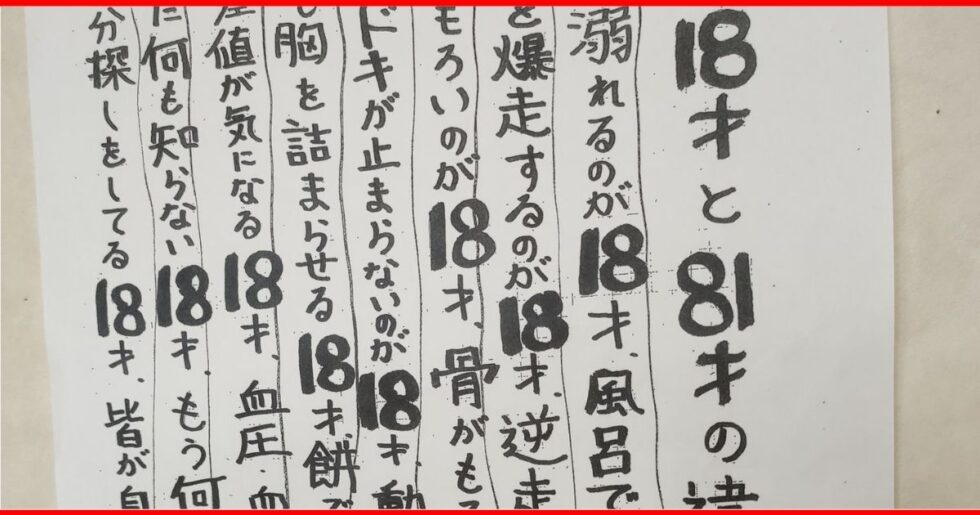 18才と81才の違
溺れるのが18才、風呂で
を爆走するのが18才、逆走
もろいのが18才、骨がもろ
ドキが止まらないのが18才、動
し胸を詰まらせる18才、餅で
差値が気になる18才、血圧・血
に何も知らない18才、もう何
分探しをしてる18才、皆が自